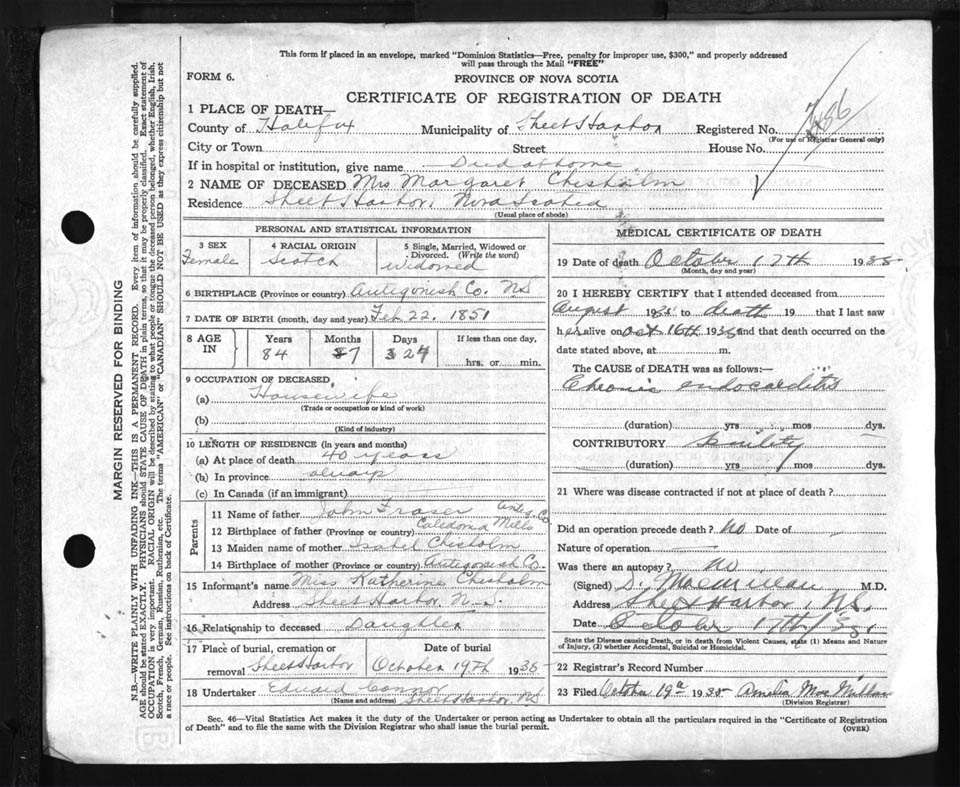 This form if placed in an envelope, marked "Dominion Statistics—Free, penalty for improper use, $300," and properly addressed
will pass through the Mail "FREE"
FORM 6.
PROVINCE OF NOVA SCOTIA
CERTIFICATE OF REGISTRATION OF DEATH
1 PLACE OF DEATH—
County of Halifax Municipality of Sheet Harbor Registered No.
(For use of Registrar General only)
City or Town Street House No.
If in hospital or institution, give name Died at home
2 NAME OF DECEASED Mrs Margaret Chisholm
Residence Sheet Harbor, Nova Scotia
(Usual place of abode)
PERSONAL AND STATISTICAL INFORMATION
3 SEX
Female
4 RACIAL ORIGIN
Scotch
5 Single, Married, Widowed or
Divorced. (Write the word)
Widowed
6 BIRTHPLACE (Province or country) Antigonish Co. NS
7 DATE OF BIRTH (month, day and year) Feb 22. 1851
8 AGE IN
Years Months Days If less than one day,
84 7 24 hrs. or min.
9 OCCUPATION OF DECEASED
(a) Housewife
(Trade or occupation or kind of work)
(b)
(Kind of industry)
10 LENGTH OF RESIDENCE (in years and months)
(a) At place of death 40 years
(b) In province always
(c) In Canada (if an immigrant)
Parents
11 Name of father John Fraser
12 Birthplace of father (Province or country) Caledonia Mills Antig. Co.
13 Maiden name of mother Isabel Chisholm
14 Birthplace of mother (Province or country) Antigonish Co.
15 Informant's name Miss Katherine Chisholm
Address Sheet Harbor N.S.
16 Relationship to deceased Daughter
17 Place of burial, cremation or
removal Sheet Harbor
Date of burial
October 19th 1935
18 Undertaker Edward Connor
(Name and address) Sheet Harbor, NS
MEDICAL CERTIFICATE OF DEATH
19 Date of death October 17th 1935
(Month, day and year)
20 I HEREBY CERTIFY that I attended deceased from
August 1935 to death 19 that I last saw
her alive on Oct 16th 1935 and that death occurred on the
date stated above, at m.
The CAUSE OF DEATH was as follows:—
Chronic endocarditis
(duration) yrs mos dys.
CONTRIBUTORY Senility
(duration) yrs mos dys.
21 Where was disease contracted if not at place of death?
Did an operation precede death? no Date of
Nature of operation
Was there an autopsy? no
(Signed) D. MacMillan M.D.
Address Sheet Harbor, NS.
Date October 17th/35
State the Disease causing Death, or in death from Violent Causes, state (1) Means and Nature
of Injury, (2) whether Accidental, Suicidal or Homicidal.
22 Registrar's Record Number
23 Filed October 19th 1935 Amelia MacMillan
(Division Registrar)
Sec. 46—Vital Statistics Act makes it the duty of the Undertaker or person acting as Undertaker to obtain all the particulars required in the "Certificate of Registration
of Death" and to file the same with the Division Registrar who shall issue the burial permit.
(OVER)
MARGIN RESERVED FOR BINDING
N.B.—WRITE PLAINLY WITH UNFADING INK—THIS IS A PERMANENT RECORD. Every item of information should be carefully supplied.
AGE should be stated EXACTLY. PHYSICIANS should STATE CAUSE OF DEATH in plain terms, so that it may be properly classified. Exact statement of
OCCUPATION is very important. RACIAL ORIGIN will be described by stating to what people or tongue the deceased person belonged, whether English, Irish,
Scotch, French, German, Russian, Ruthenian, etc. The terms "AMERICAN" or "CANADIAN" SHOULD NOT BE USED as they express citizenship but not
a race or people. See instructions on back of Certificate.